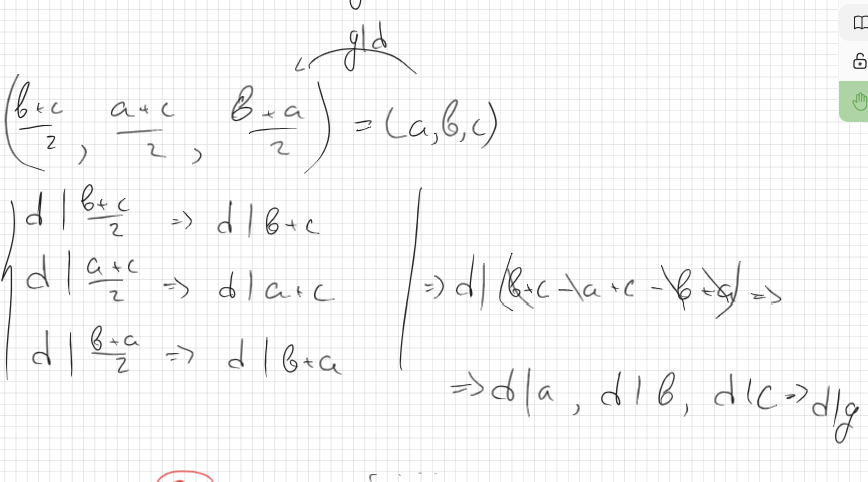 g|d
((b+c)/2, (a+c)/2, (b+a)/2) = (a,b,c)
d | (b+c)/2 => d | b+c
d | (a+c)/2 => d | a+c
d | (b+a)/2 => d | b+a
=> d | (b+c - a+c - b+a) =>
=> d | a, d | b, d | c => d | g